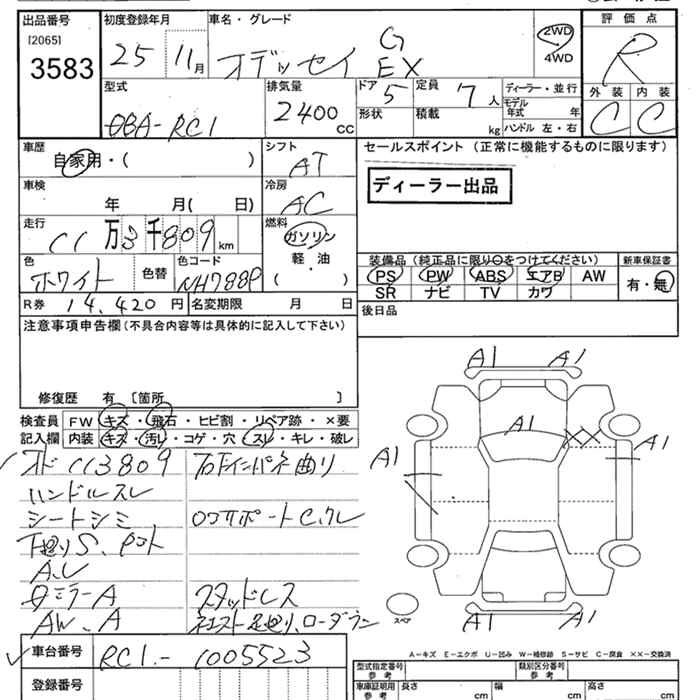 出品番号
[2065]
3583
初度登録年月
25 11月
車名・グレード
オデッセイ G EX
2WD
4WD
評価点
R
外装 内装
C C
型式
DBA-RC1
排気量
2400 CC
ドア 5
形状
定員 7人
積載 kg
ディーラー・並行
モデル年式 年
ハンドル 左・右
車歴
自家用・( )
シフト
AT
車検
年 月( 日)
冷房
AC
走行
11万3千809km
燃料
ガソリン
軽・油
( )
色
ホワイト
色替
色コード
NH788P
R券 14,420円
名変期限 月 日
セールスポイント (正常に機能するものに限ります)
ディーラー出品
装備品(純正品に限り○をつけてください)
PS PW ABS エアB AW
SR ナビ TV カワ
新車保証書
有・無
後日品
注意事項申告欄(不具合内容等は具体的に記入して下さい)
修復歴 有 [箇所 ]
検査員
記入欄
FW キズ・飛石・ヒビ割・リペア跡・×要
内装 キズ・汚レ・コゲ・穴・スレ・キレ・破レ
ハンドルスレ
シートシミ
下廻りS、
スタッドレス
AW、A
A1 A1
A1
XX
A1
A1
A1 A1
スペア
A-キズ E-エクボ U-凹み W-補修跡 S-サビ C-腐食 ××-交換済
車台番号
RC1-1005523
登録番号
型式指定番号
参考
類別区分番号
参考
車庫証明用
参考
長さ cm
幅 cm
高さ cm